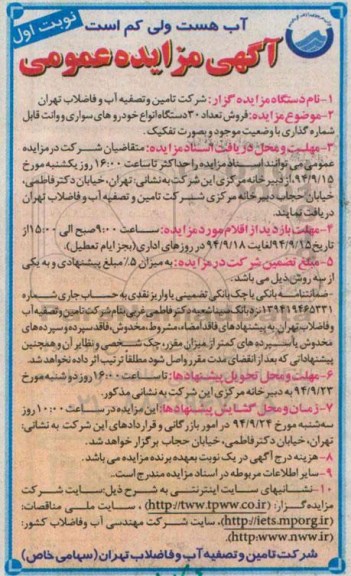 آب هست ولی کم است
نوبت اول
آگهی مزایده عمومی
۱-نام دستگاه مزایده گزار: شرکت تامین و تصفیه آب و فاضلاب تهران
۲-موضوع مزایده: فروش تعداد ۳۰ دستگاه انواع خودروهای سواری و وانت قابل
شماره گذاری با وضعیت موجود و بصورت تفکیک.
۳-مهلت و محل دریافت اسناد مزایده: متقاضیان شرکت در مزایده
عمومی می توانند اسناد مزایده را حداکثر تا ساعت ۱۶:۰۰ روز یکشنبه مورخ
۹۴/۹/۱۵، از دبیرخانه مرکزی این شرکت به نشانی: تهران، خیابان دکتر فاطمی،
خیابان حجاب دبیرخانه مرکزی شرکت تامین و تصفیه آب و فاضلاب تهران
دریافت نمایند.
۴-مهلت بازدید از اقلام مورد مزایده: ساعت ۹:۰۰ صبح الی ۱۵:۰۰ از
تاریخ ۹۴/۹/۱۵ لغایت ۹۴/۹/۱۸ در روزهای اداری (بجز ایام تعطیل).
۵-مبلغ تضمین شرکت در مزایده: به میزان ۵٪ مبلغ پیشنهادی و به یکی
از سه روش ذیل می باشد.
-ضمانتنامه بانکی یا چک بانکی تضمینی یا واریز نقدی به حساب جاری شماره
۱۳۹۴۱۹۴۶۵۳۳۱ نزد بانک سینا شعبه دکتر فاطمی غربی بنام شرکت تامین و تصفیه آب
و فاضلاب تهران به پیشنهادهای فاقد امضاء، مشروط، مخدوش، فاقد سپرده و سپرده های
مخدوش یا سپرده های کمتر از میزان مقرر، چک شخصی و نظایر آن و همچنین
پیشنهاداتی که بعد از انقضای مدت مقرر واصل شود مطلقا ترتیب اثر داده نخواهد شد.
۶-مهلت و محل تحویل پیشنهادها: تا ساعت ۱۶:۰۰ روز دوشنبه مورخ
۹۴/۹/۲۳ به دبیرخانه مرکزی این شرکت به نشانی مذکور.
۷-زمان و محل گشایش پیشنهادها: این مزایده در ساعت ۱۰:۰۰ روز
سه شنبه مورخ ۹۴/۹/۲۴ در امور بازرگانی و قراردادهای این شرکت به نشانی:
تهران، خیابان دکتر فاطمی، خیابان حجاب برگزار خواهد شد.
۸-هزینه درج آگهی در یک نوبت بعهده برنده مزایده می باشد.
۹-سایر اطلاعات مربوطه در اسناد مزایده مندرج است.
۱۰-نشانیهای سایت اینترنتی به شرح ذیل: سایت شرکت
مزایده گزار: (http://tww.tpww.co.ir) ، سایت ملی مناقصات:
(http://iets.mporg.ir)، سایت شرکت مهندسی آب و فاضلاب کشور:
(http:www.nww.ir).
شرکت تامین و تصفیه آب و فاضلاب تهران (سهامی خاص)